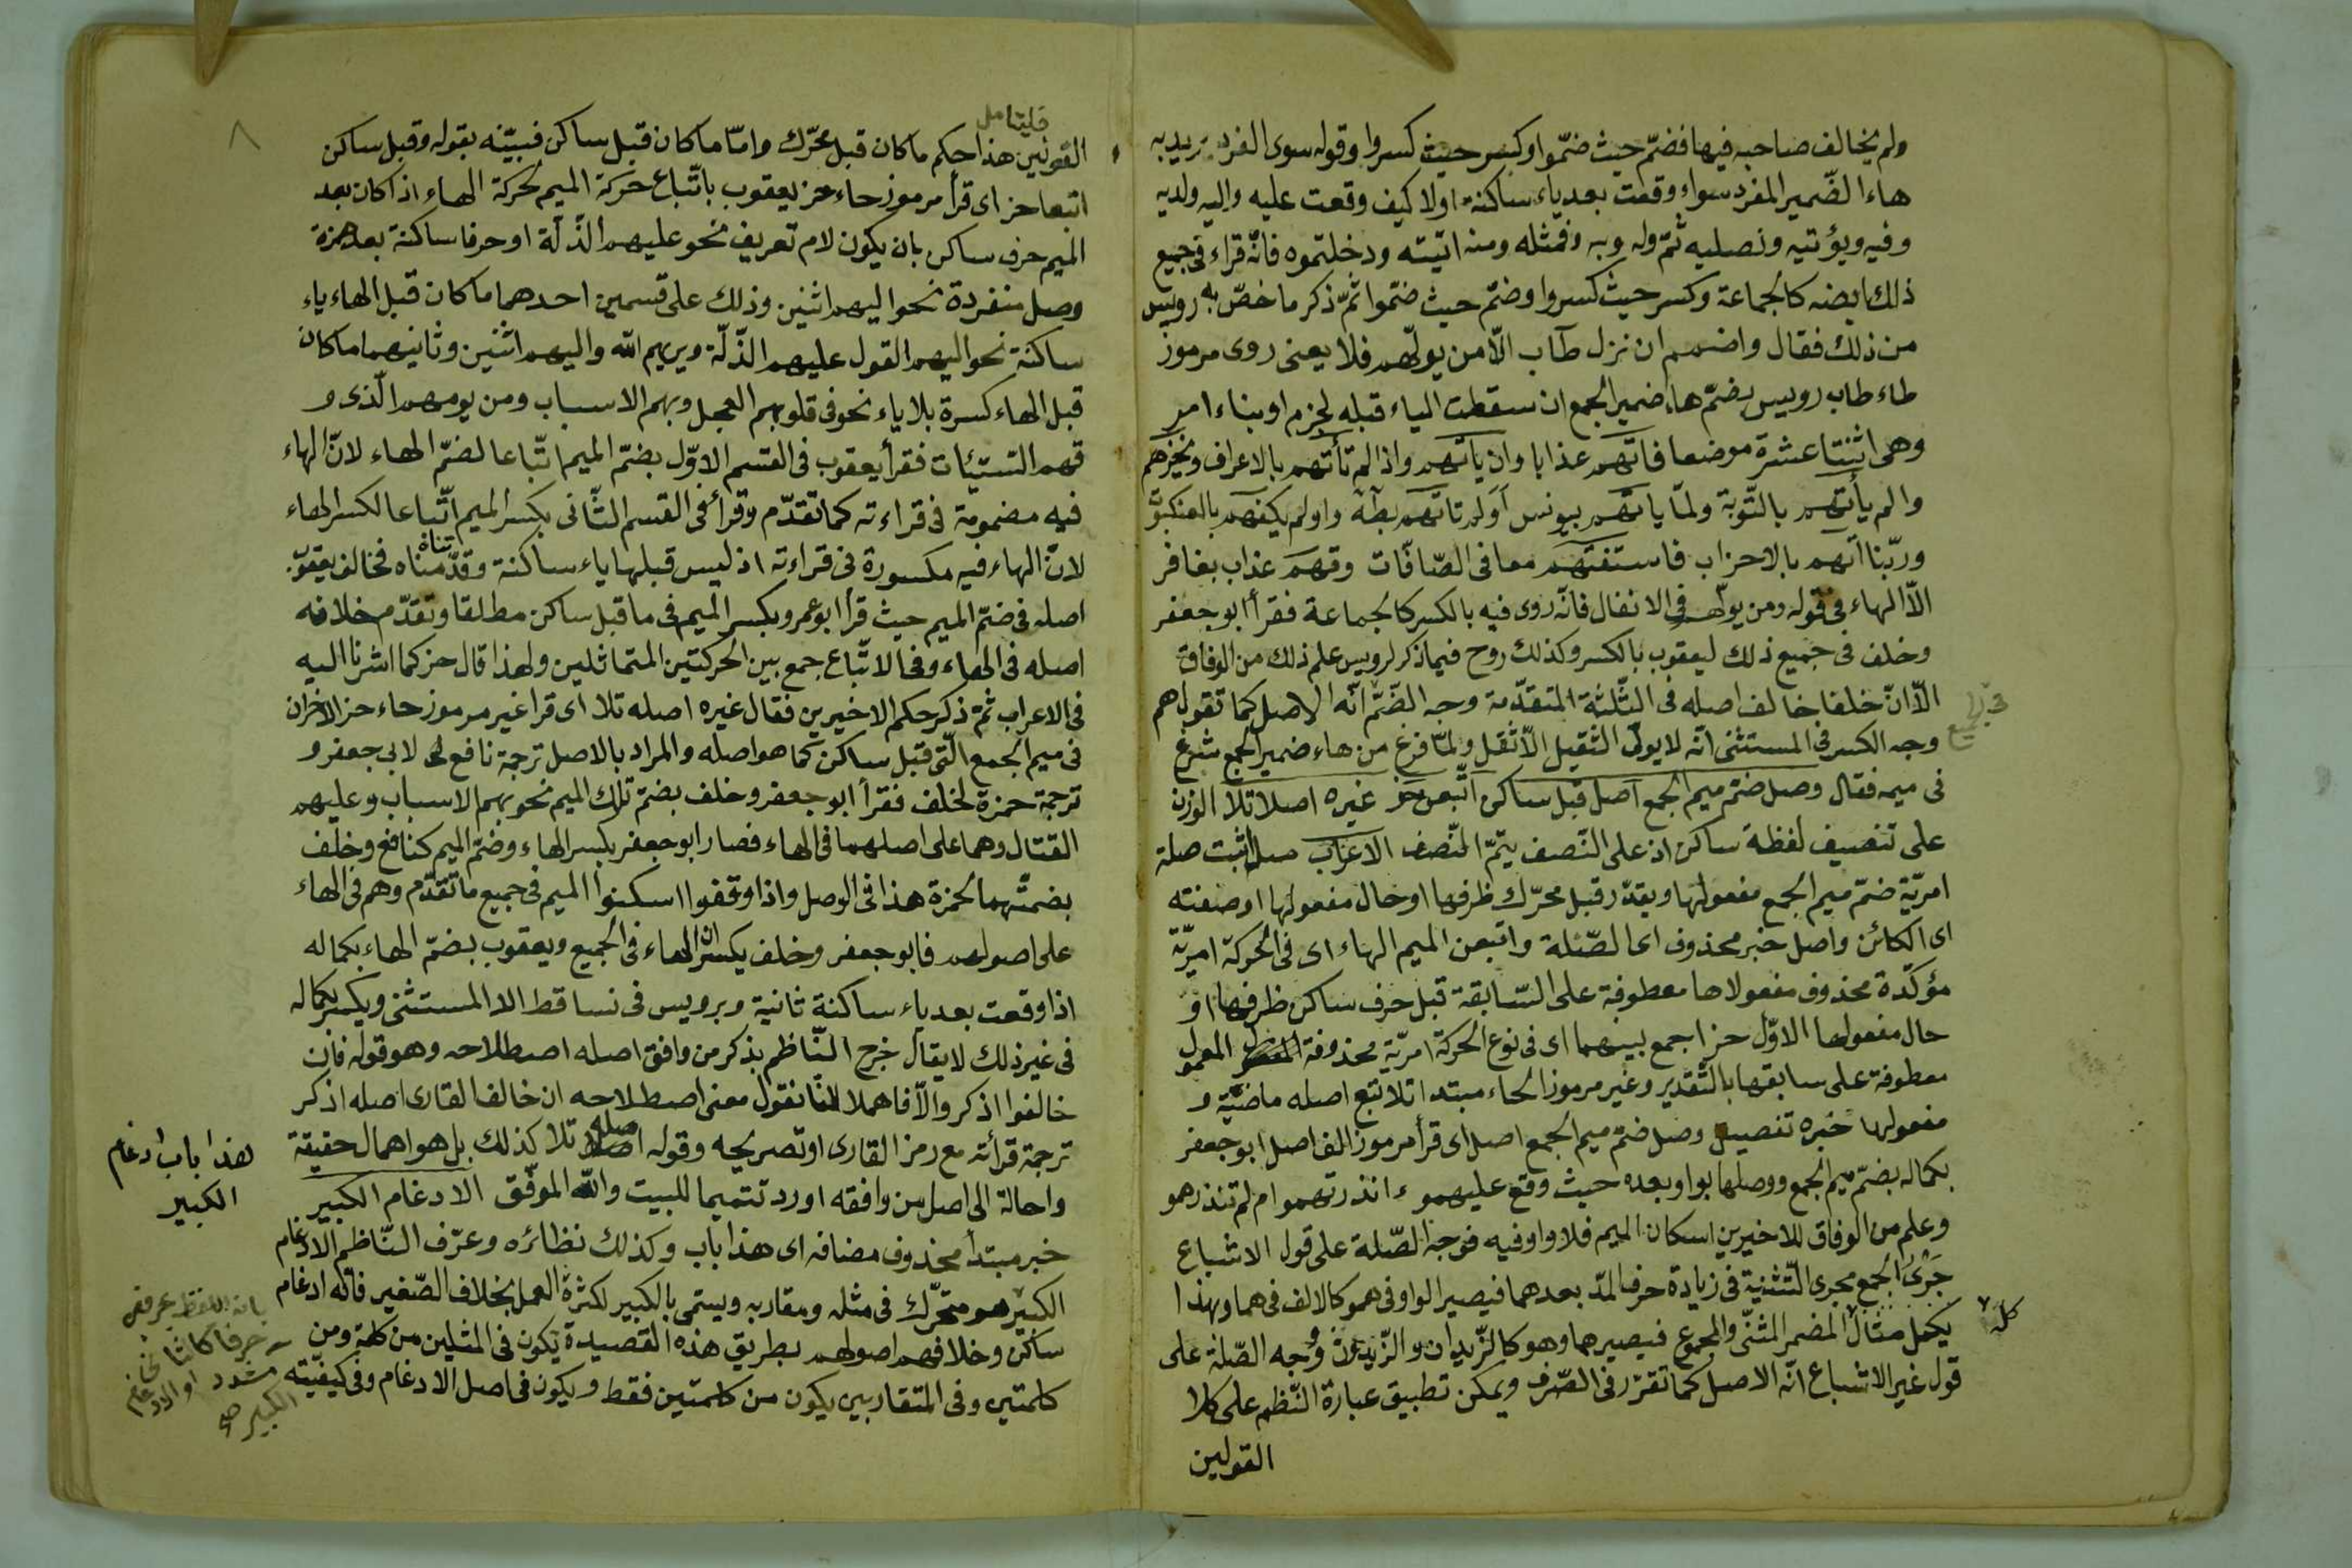 ولم يخالف صاحبه فيها فضمّ حيث ضمّوا وكسر حيث كسروا وقوله سوى الفرد يريد به
هاء الضّمير المفرد سواء وقعت بعد ياء ساكنة اولا كيف وقعت عليه واليه ولديه
وفيه ويؤتيه ونصليه ثمّ وله وبه وفمثله ومنه اتيته ودخلتموه فانّه قراء فى جميع
ذلك ايضه كالجماعة وكسر حيث كسروا وضمّ حيث ضمّوا ثمّ ذكر ما خصّ به رويس
من ذلك فقال واضمم ان نزل طاب الّا من يولّهم فلا يعنى روى مرموز
طاء طاب رويس بضمّ هاء ضمير الجمع ان سقطت الياء قبله لجزم او بناء امر
وهى اثنتا عشرة موضعا فاتهم عذابا وان ياتهم واذا لم تأتهم بالاعراف ويخزهم
والم يأتهم بالتّوبة ولمّا ياتهم بيونس اولم تاتهم بطه واولم يكفهم بالعنكبوت
وربّنا اتهم بالاحزاب فاستفتهم معا فى الصّافّات وقهم عذاب بغافر
الّا الهاء فى قوله ومن يولّهم فى الانفال فانّه روى فيه بالكسر كالجماعة فقرأ ابو جعفر
وخلف فى جميع ذلك ليعقوب بالكسر وكذلك روح فيما ذكر لرويس علم ذلك من الوفاق
الّا انّ خلفا خالف اصله فى الثّلثة المتقدّمة وجه الضّمّ انّه الاصل كما تقول هم
وجه الكسر فى المستثنى انّه لا يولى الثقيل الّا ثقل ولمّا فرغ من هاء ضمير الجمع شرع
فى ميمه فقال وصل ضمّ ميم الجمع اصل قبل ساكن اتبعن حز غيره اصلا تلا الوزن
على تنصيف لفظة ساكن اذ على النّصف يتمّ النّصف الاعراب صل اثبت صلة
امريّة ضمّ ميم الجمع مفعولها ويقدّر قبل محرّك ظرفها او حال مفعولها او صفته
اى الكائن واصل خبر محذوف اى الصّلة واتبعن الميم الهاء اى فى الحركة امريّة
مؤكّدة محذوف مفعولاها معطوفة على السّابقة قبل حرف ساكن ظرفها او
حال مفعولها الاوّل حز اجمع بينهما اى فى نوع الحركة امريّة محذوفة المعمول
معطوفة على سابقها بالتّقدير وغير مرموز الحاء مبتدا تلا تبع اصله ماضيّة و
مفعولها خبره تفصيل وصل ضمّ ميم الجمع اصل اى قرأ مرموز الف اصل ابو جعفر
بكماله بضمّ ميم الجمع ووصلها بواو بعده حيث وقع عليهموء انذرتهموا ام لم تنذرهمو
وعلم من الوفاق للاخيرين اسكان الميم فلا واو فيه فوجه الصّلة على قول الاشباع
جَرْىُ الجمع مجرى التّثنية فى زيادة حرف المدّ بعدهما فيصير الواو فى همو كالالف فى هما وبهذا
يكمل مثال المضمر المثنّى والمجموع فيصير هما وهمو كالزّيدان والزّيدون وجه الصّلة على
قول غير الاشباع انّه الاصل كما تقرّر فى الصّرف ويمكن تطبيق عبارة النّظم على كلا
القولين
كله
٨
فليتامل
القولين هذا حكم ما كان قبل محرّك وامّا ما كان قبل ساكن فبيّنه بقوله وقبل ساكن
اتبعا حز اى قرأ مرموز حاء حز يعقوب باتّباع حركة الميم لحركة الهاء اذا كان بعد
الميم حرف ساكن بان يكون لام تعريف نحو عليهم الذّلّة او حرفا ساكنة بعد همزة
وصل منفردة نحو اليهم اثنين وذلك على قسمين احدهما ما كان قبل الهاء ياء
ساكنة نحو اليهم القول عليهم الذّلّة ويريهم اللّه واليهم اثنين وثانيهما ما كان
قبل الهاء كسرة بلا ياء نحو فى قلوبهم العجل وبهم الاسباب ومن يومهم الّذى و
قهم السّيّئات فقرأ يعقوب فى القسم الاوّل بضمّ الميم اتّباعا لضمّ الهاء لانّ الهاء
فيه مضمومة فى قراءته كما تقدّم وقرأ فى القسم الثّانى بكسر الميم اتّباعا لكسر الهاء
لانّ الهاء فيه مكسورة فى قراءته اذ ليس قبلها ياء ساكنة وقدّمناه فخالف يعقوب
اصله فى ضمّ الميم حيث قرأ ابو عمرو بكسر الميم فى ما قبل ساكن مطلقا وتقدّم خلافه
اصله فى الهاء وفى الاتّباع جمع بين الحركتين المتماثلين ولهذا قال حز كما اشرنا اليه
فى الاعراب ثمّ ذكر حكم الاخيرين فقال غيره اصله تلا اى قرا غير مرموز حاء حز الاخران
فى ميم الجمع الّتى قبل ساكن كما هو اصله والمراد بالاصل ترجمة نافع لابى جعفر و
ترجمة حمزة لخلف فقرأ ابو جعفر وخلف بضمّ تلك الميم نحو بهم الاسباب وعليهم
القتال وهما على اصلهما فى الهاء فصار ابو جعفر بكسر الهاء وضمّ الميم كنافع وخلف
بضمّهما كحمزة هذا فى الوصل واذا وقفوا اسكنوا الميم فى جميع ما تقدّم وهم فى الهاء
على اصولهم فابو جعفر وخلف يكسران الهاء فى الجميع ويعقوب بضمّ الهاء بكماله
اذا وقعت بعد ياء ساكنة ثانية وبرويس فى نساقط الا المستثنى ويكسر بكماله
فى غير ذلك لا يقال خرج النّاظم بذكر من وافق اصله اصطلاحه وهو قوله فان
خالفوا اذكر والّا فاهملا لانّا نقول معنى اصطلاحه ان خالف القارى اصله اذكر
ترجمة قرأته مع رمز القارى او تصريحه وقوله اصله تلا كذلك بل هو اهمال حقيقة
واحالة الى اصل من وافقه اورد تتميما للبيت واللّه الموفّق الادغام الكبير
خبر مبتدأ محذوف مضافه اى هذا باب وكذلك نظائره وعرّف النّاظم الادغام
الكبير هو متحرّك فى مثله ومقاربه ويسمّى بالكبير لكثرة العمل بخلاف الصّغير فانّه ادغام
ساكن وخلافهم اصولهم بطريق هذه القصيدة يكون فى المثلين من كلمة ومن
كلمتين وفى المتقاربين يكون من كلمتين فقط ويكون فى اصل الادغام وفى كيفيّته
هذا باب ادغام
الكبير